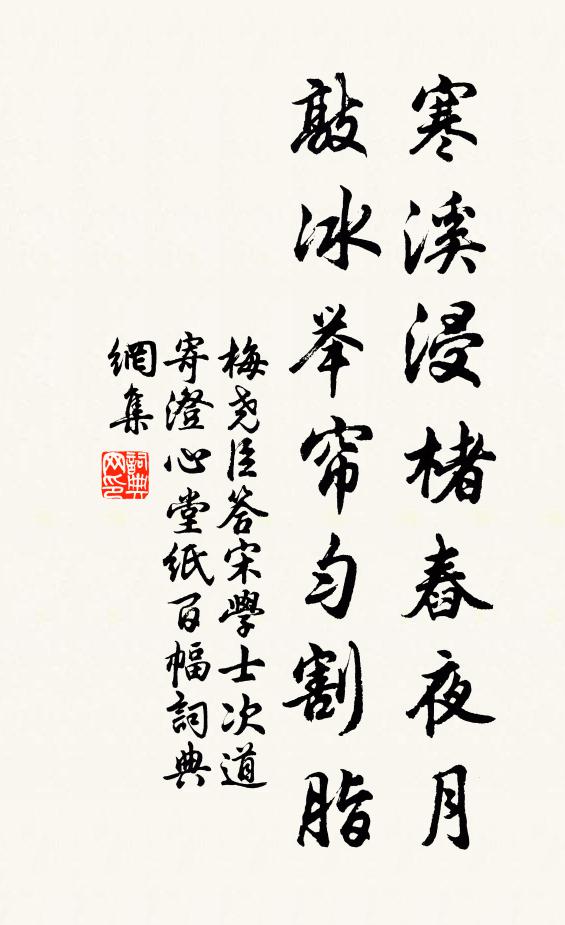 寒溪浸楮舂夜月
敲冰举帘匀割脂
梅尧臣答宋學士次道
寄澄心堂紙百幅詞典
網集
詞典
网印